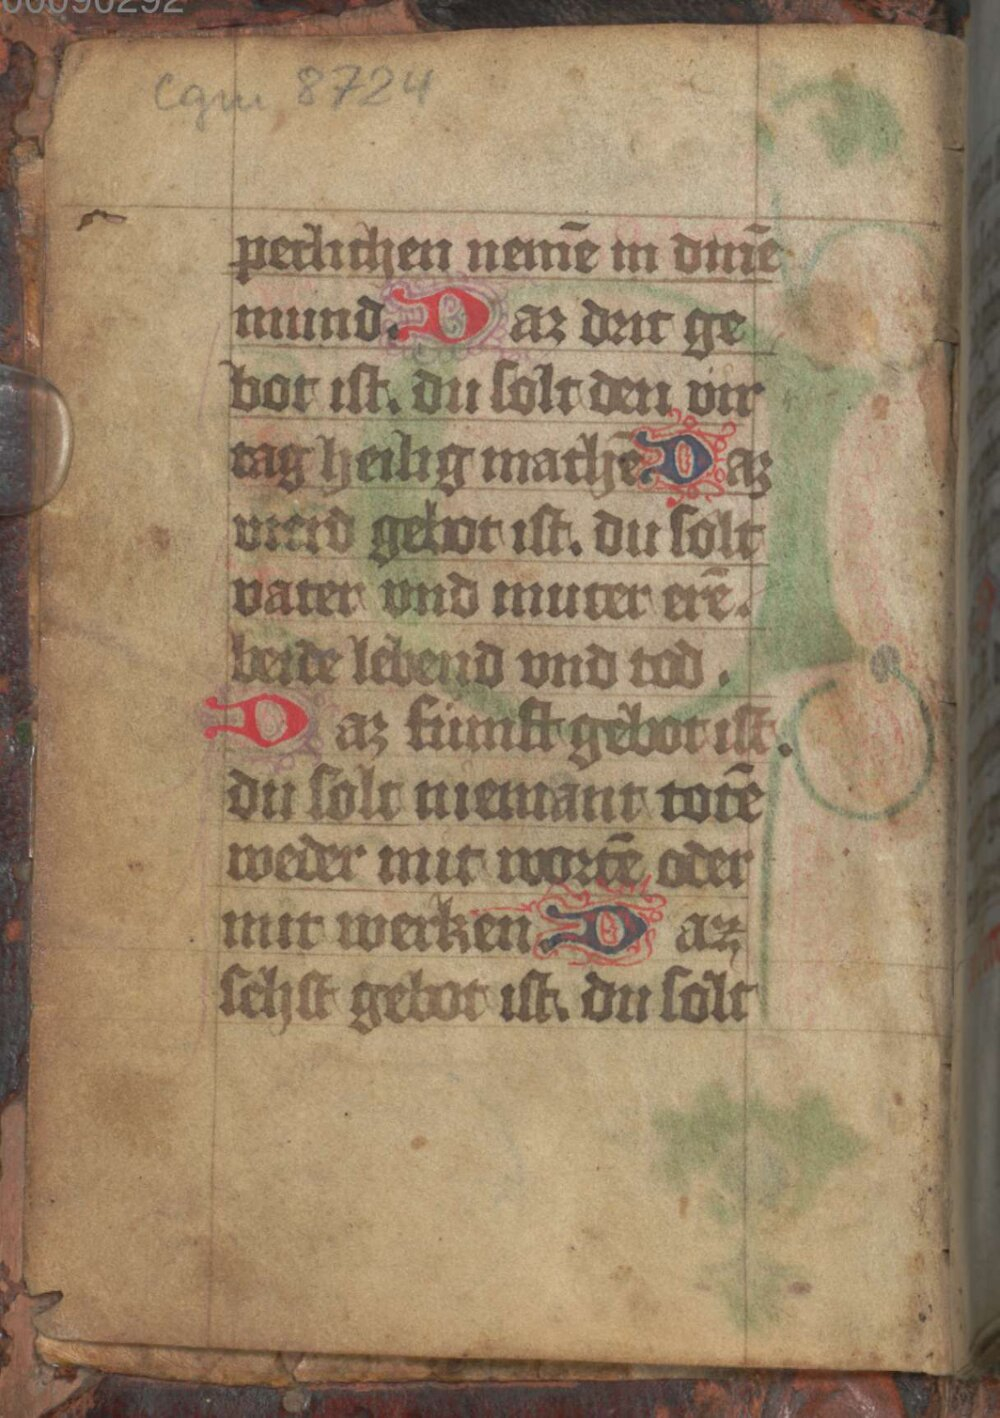 00090292
Cgm 8724
perlichen nemē in dinē
mund. Daz drit ge
bot ist. du solt den vir
tag heilig machē. Daz
vierd gebot ist. du solt
vater vnd muter erē.
beide lebend vnd tod.
Daz fünft gebot ist.
du solt niemant totē
weder mit wortē oder
mit werken. Daz
sehst gebot ist. du solt